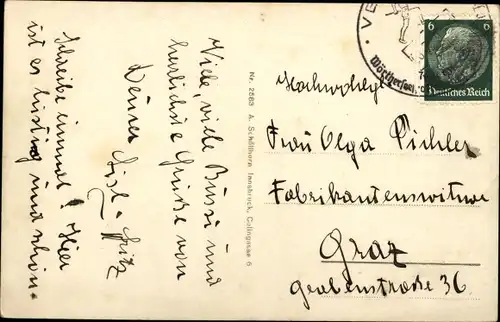 Viele, viele Bussi und
herzlichste Grüße von
Deiner Gisl. Fritz
Schreibe einmal! Hier
ist es lustig und schön.
Nr. 2563 A. Schöllhorn Innsbruck, Colingasse 6
VE
Wörthersee
6 6
Deutsches Reich
Hochwohlgeb.
Frau Olga Pichler
Fabrikantenswitwe
Graz
Grabenstraße 36.